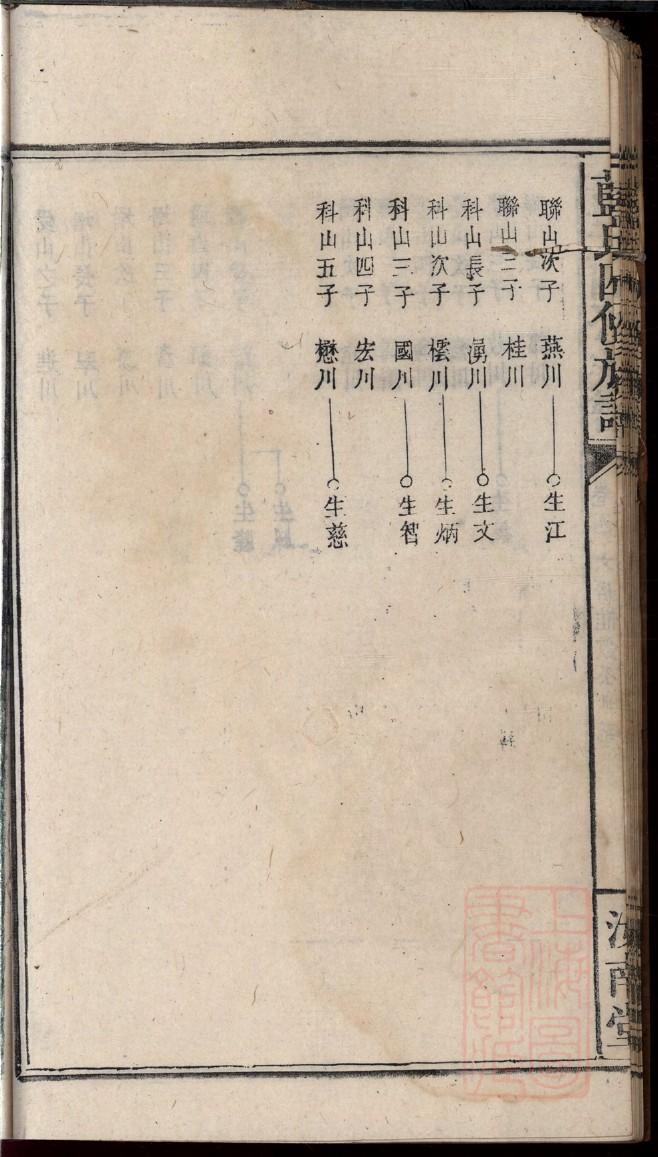 藍氏四修族譜
聯山次子 燕川 生江
聯山三子 桂川
科山長子 湧川 生文
科山次子 檼川 生炳
科山三子 國川 生智
科山四子 宏川
科山五子 懋川 生慈
汝南堂
上海圖書館藏